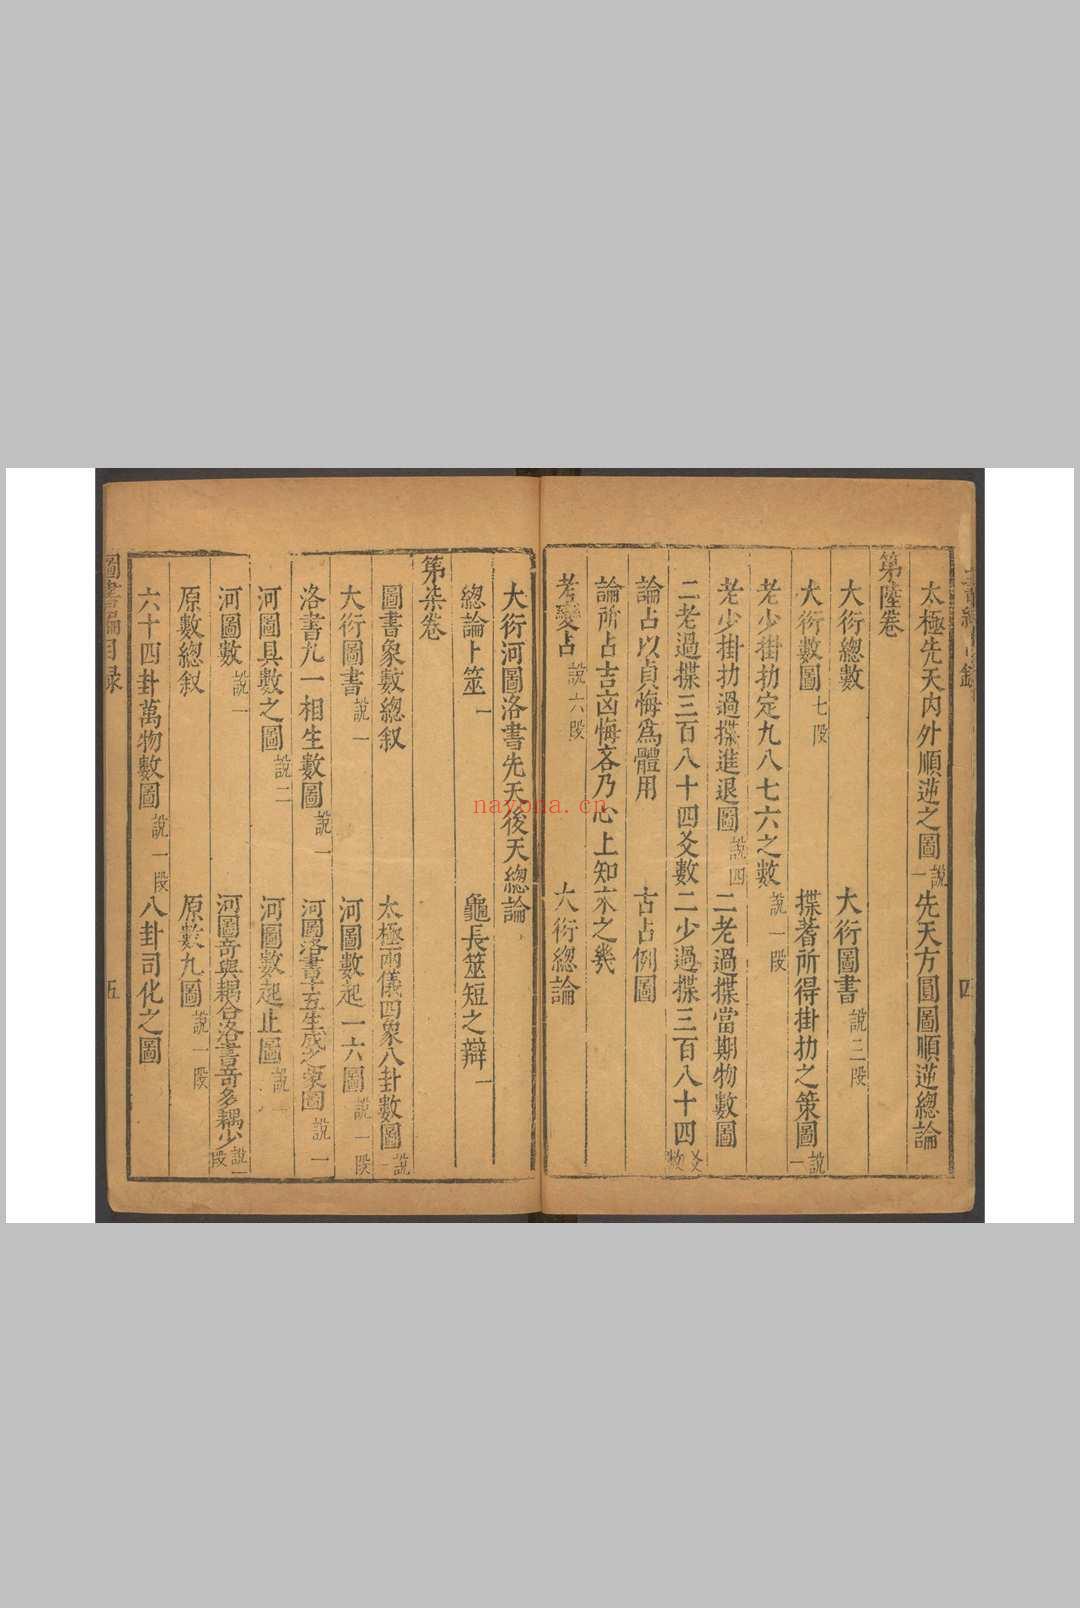 太極先天內外順逆之圖說一 先天方圓圖順逆總論
第陸卷
大衍總數 大衍圖書說二段
大衍數圖七段 揲蓍所得掛扐之策圖說一
老少掛扐定九八七六之數說一段
老少掛扐過揲進退圖說四 二老過揲當期物數圖
二老過揲三百八十四爻數 二少過揲三百八十四爻數
論占以貞悔爲體用 古占例圖
論所占吉凶悔吝乃心上知來之幾
考變占說六段 大衍總論
四
大衍河圖洛書先天後天總論
總論卜筮一 龜長筮短之辯一
第柒卷
圖書象數總叙 太極兩儀四象八卦數圖說一
大衍圖書說一 河圖數起一六圖說一段
洛書九一相生數圖說一 河圖洛書十五生成之象圖說一
河圖具數之圖說二 河圖數起止圖說一
河圖數說一 河圖奇與耦合洛書奇多耦少說一段
原數總叙 原數九圖說一段
六十四卦萬物數圖說一段 八卦司化之圖
圖書編目録
五
nayona.cn